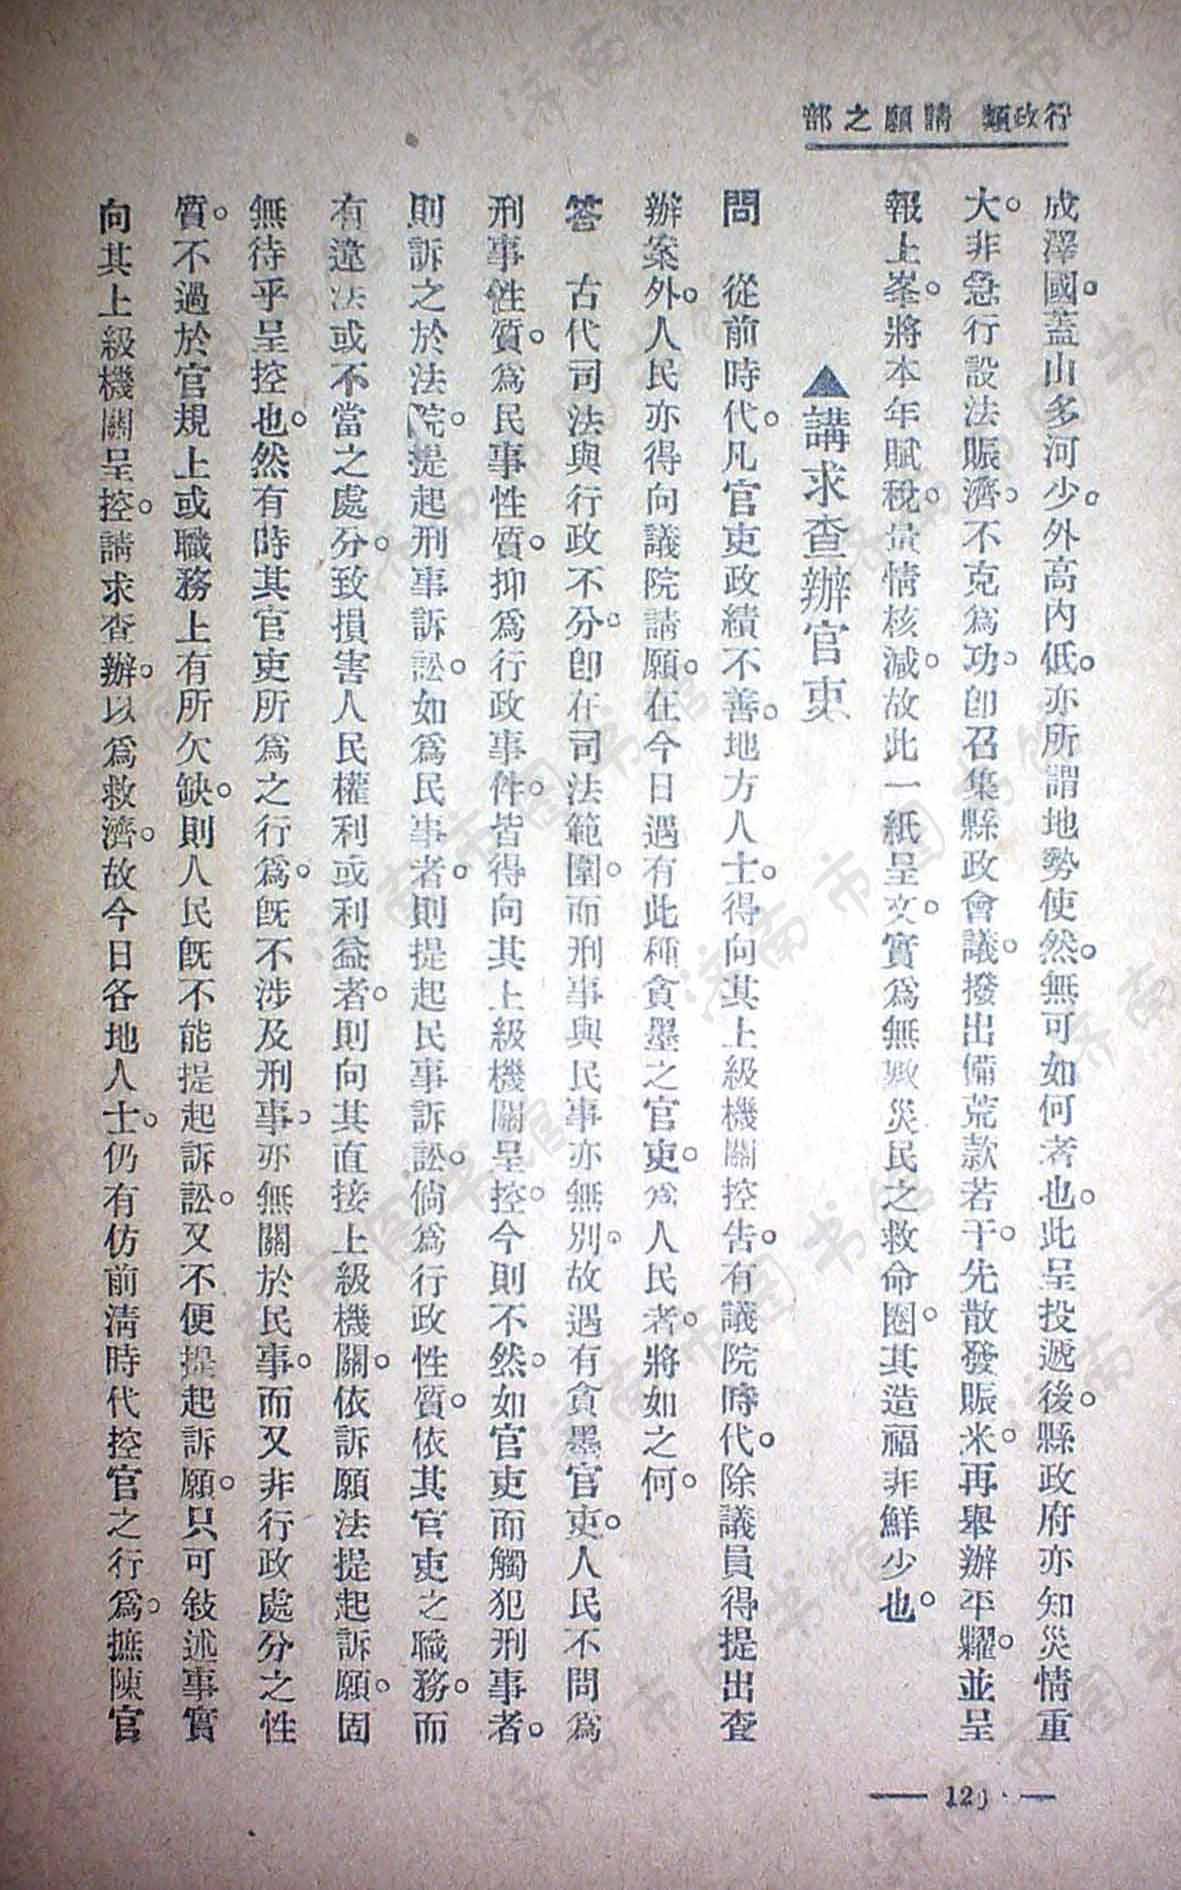 行政類　請願之部
成澤國。蓋山多河少。外高內低。亦所謂地勢使然。無可如何者也。此呈投遞後。縣政府亦知災情重
大。非急行設法賑濟。不克爲功。卽召集縣政會議。撥出備荒款若干。先散發賑米。再舉辦平糶。並呈
報上峯。將本年賦稅。量情核減。故此一紙呈文。實爲無數災民之救命圈。其造福非鮮少也。
▲講求查辦官吏
問　從前時代。凡官吏政績不善。地方人士。得向其上級機關控告。有議院時代。除議員得提出查
辦案外。人民亦得向議院請願。在今日遇有此種貪墨之官吏。爲人民者。將如之何。
答　古代司法與行政不分。卽在司法範圍。而刑事與民事亦無別。故遇有貪墨官吏。人民不問爲
刑事性質。爲民事性質。抑爲行政事件。皆得向其上級機關呈控。今則不然。如官吏而觸犯刑事者。
則訴之於法院。提起刑事訴訟。如爲民事者。則提起民事訴訟。倘爲行政性質。依其官吏之職務。而
有違法或不當之處分。致損害人民權利或利益者。則向其直接上級機關。依訴願法提起訴願。固
無待乎呈控也。然有時其官吏所爲之行爲。旣不涉及刑事。亦無關於民事。而又非行政處分之性
質。不過於官規上或職務上有所欠缺。則人民旣不能提起訴訟。又不便提起訴願。只可敍述事實
向其上級機關呈控。請求查辦。以爲救濟。故今日各地人士。仍有仿前淸時代控官之行爲。摭陳官
濟南市图书馆